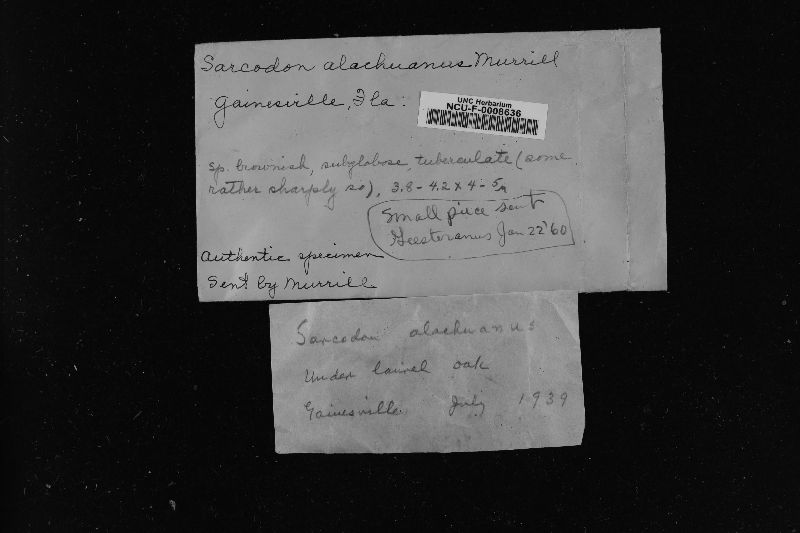 Sarcodon alachuanus Murrill
Gainesville, Fla.
UNC Herbarium
NCU-F-0008636
Sp. brownish, subglobose, tuberculate (some
rather sharply so), 3.8-4.2 x 4-5µ
Small piece sent
Geesteranus Jan 22 '60
Authentic specimen
Sent by Murrill
Sarcodon alachuanus
Under laurel oak
Gainesville July 1939